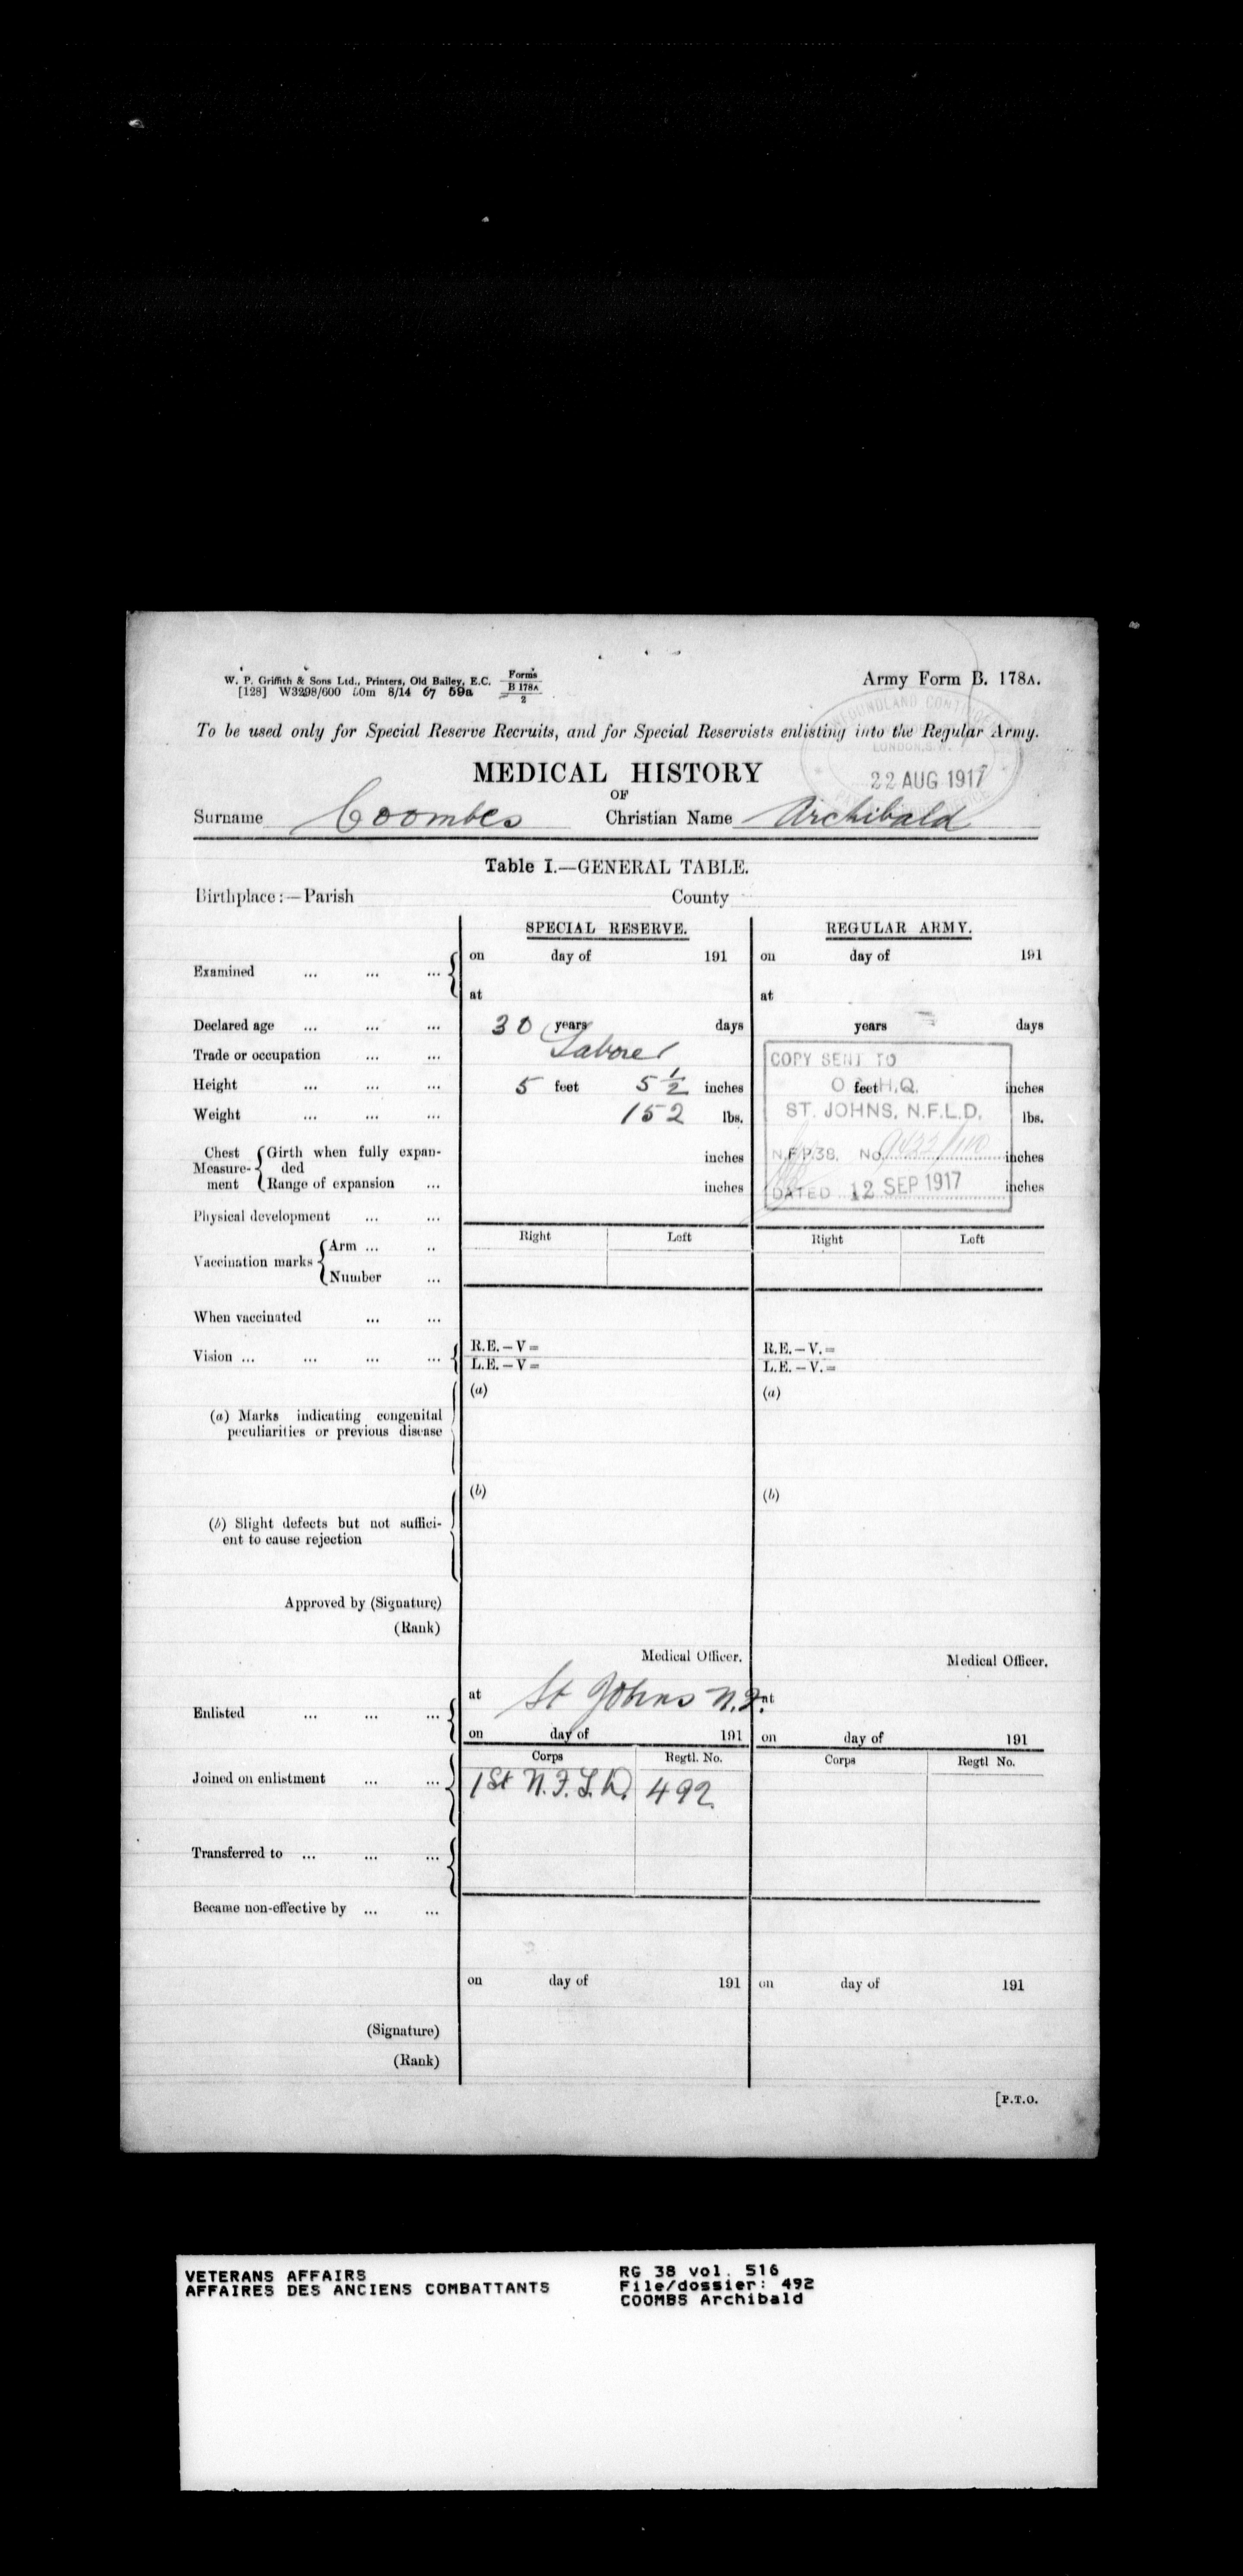 W. P. Griffith & Sons Ltd., Printers, Old Bailey, E.C. Forms B 178A 2
[128] W3298/600 40m 8/14 67 59a
Army Form B. 178A.
To be used only for Special Reserve Recruits, and for Special Reservists enlisting into the Regular Army.
LONDON, S.W.
22 AUG 1917
MEDICAL HISTORY
OF
Surname Coombes Christian Name Archibald
Table I.—GENERAL TABLE.
Birthplace:—Parish County
SPECIAL RESERVE. REGULAR ARMY.
Examined ... ... ... on day of 191 on day of 191
at at
Declared age ... ... ... 30 years days years days
Trade or occupation ... ... Laborer
Height ... ... ... 5 feet 5 1/2 inches feet inches
Weight ... ... ... 152 lbs. lbs.
Chest Measurement Girth when fully expanded inches inches
Range of expansion ... inches inches
COPY SENT TO
H.Q.
ST. JOHNS, N.F.L.D.
N.F.P.38. No.
DATED 12 SEP 1917
Physical development ... ...
Right Left Right Left
Vaccination marks Arm ... ..
Number ...
When vaccinated ... ...
Vision ... ... ... ... R.E.—V= R.E.—V.=
L.E.—V= L.E.—V.=
(a) (a)
(a) Marks indicating congenital
peculiarities or previous disease
(b) (b)
(b) Slight defects but not suffici-
ent to cause rejection
Approved by (Signature)
(Rank)
Medical Officer. Medical Officer.
Enlisted ... ... ... at St Johns N.F. at
on day of 191 on day of 191
Corps Regtl. No. Corps Regtl No.
Joined on enlistment ... ... 1st N.F.L.D. 492
Transferred to ... ... ...
Became non-effective by ... ...
on day of 191 on day of 191
(Signature)
(Rank)
[P.T.O.
VETERANS AFFAIRS
AFFAIRES DES ANCIENS COMBATTANTS
RG 38 vol. 516
File/dossier: 492
COOMBS Archibald